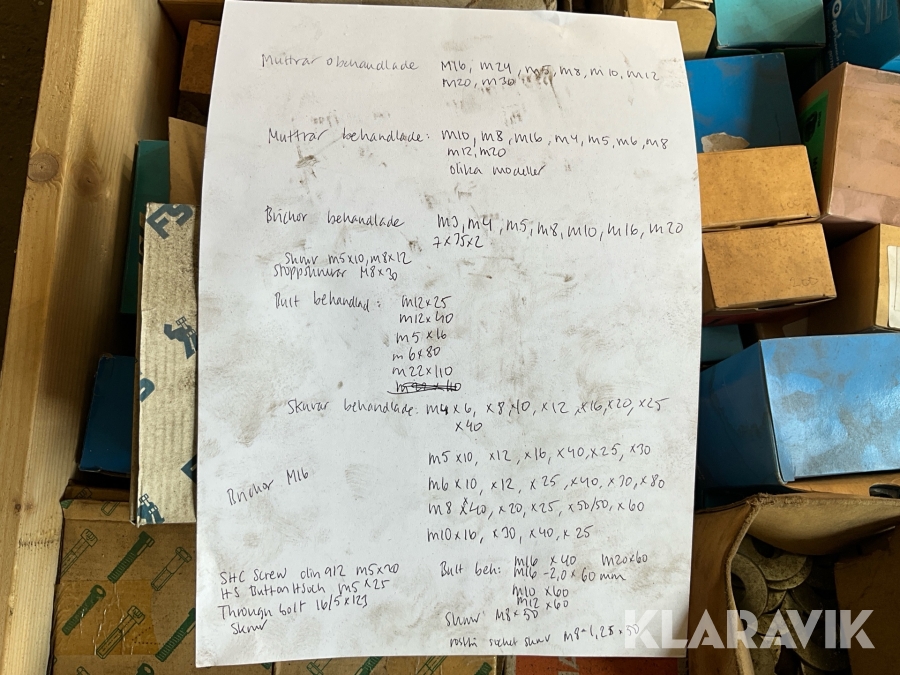 Muttrar obehandlade M16, m24, m5, m8, m10, m12
m20, m30
Muttrar behandlade: m10, m8, m16, m4, m5, m6, m8
m12, m20
olika modeller
Brickor behandlade m3, m4, m5, m8, m10, m16, m20
7x35x2
Skruv m5x10, m8x12
Stoppskruvar M8x30
Bult behandlad: m12x25
m12x40
m5x16
m6x80
m22x110
Skruvar behandlade: m4x6, x8, x10, x12, x16, x20, x25
x40
m5x10, x12, x16, x40, x25, x30
m6x10, x12, x25, x40, x30, x80
Brickor M16
m8x40, x20, x25, x50/50, x60
m10x16, x30, x40, x25
SHC Screw din 912 m5x20
Bult beh: m16 x40 m20x60
m16 -2,0 x 60 mm
HS Button m5x25
m10 x60
Through bolt 16/5x123
m12 x60
Skruv
Skruv M8x50
socket skruv M8-1,25x50
KLARAVIK
FS